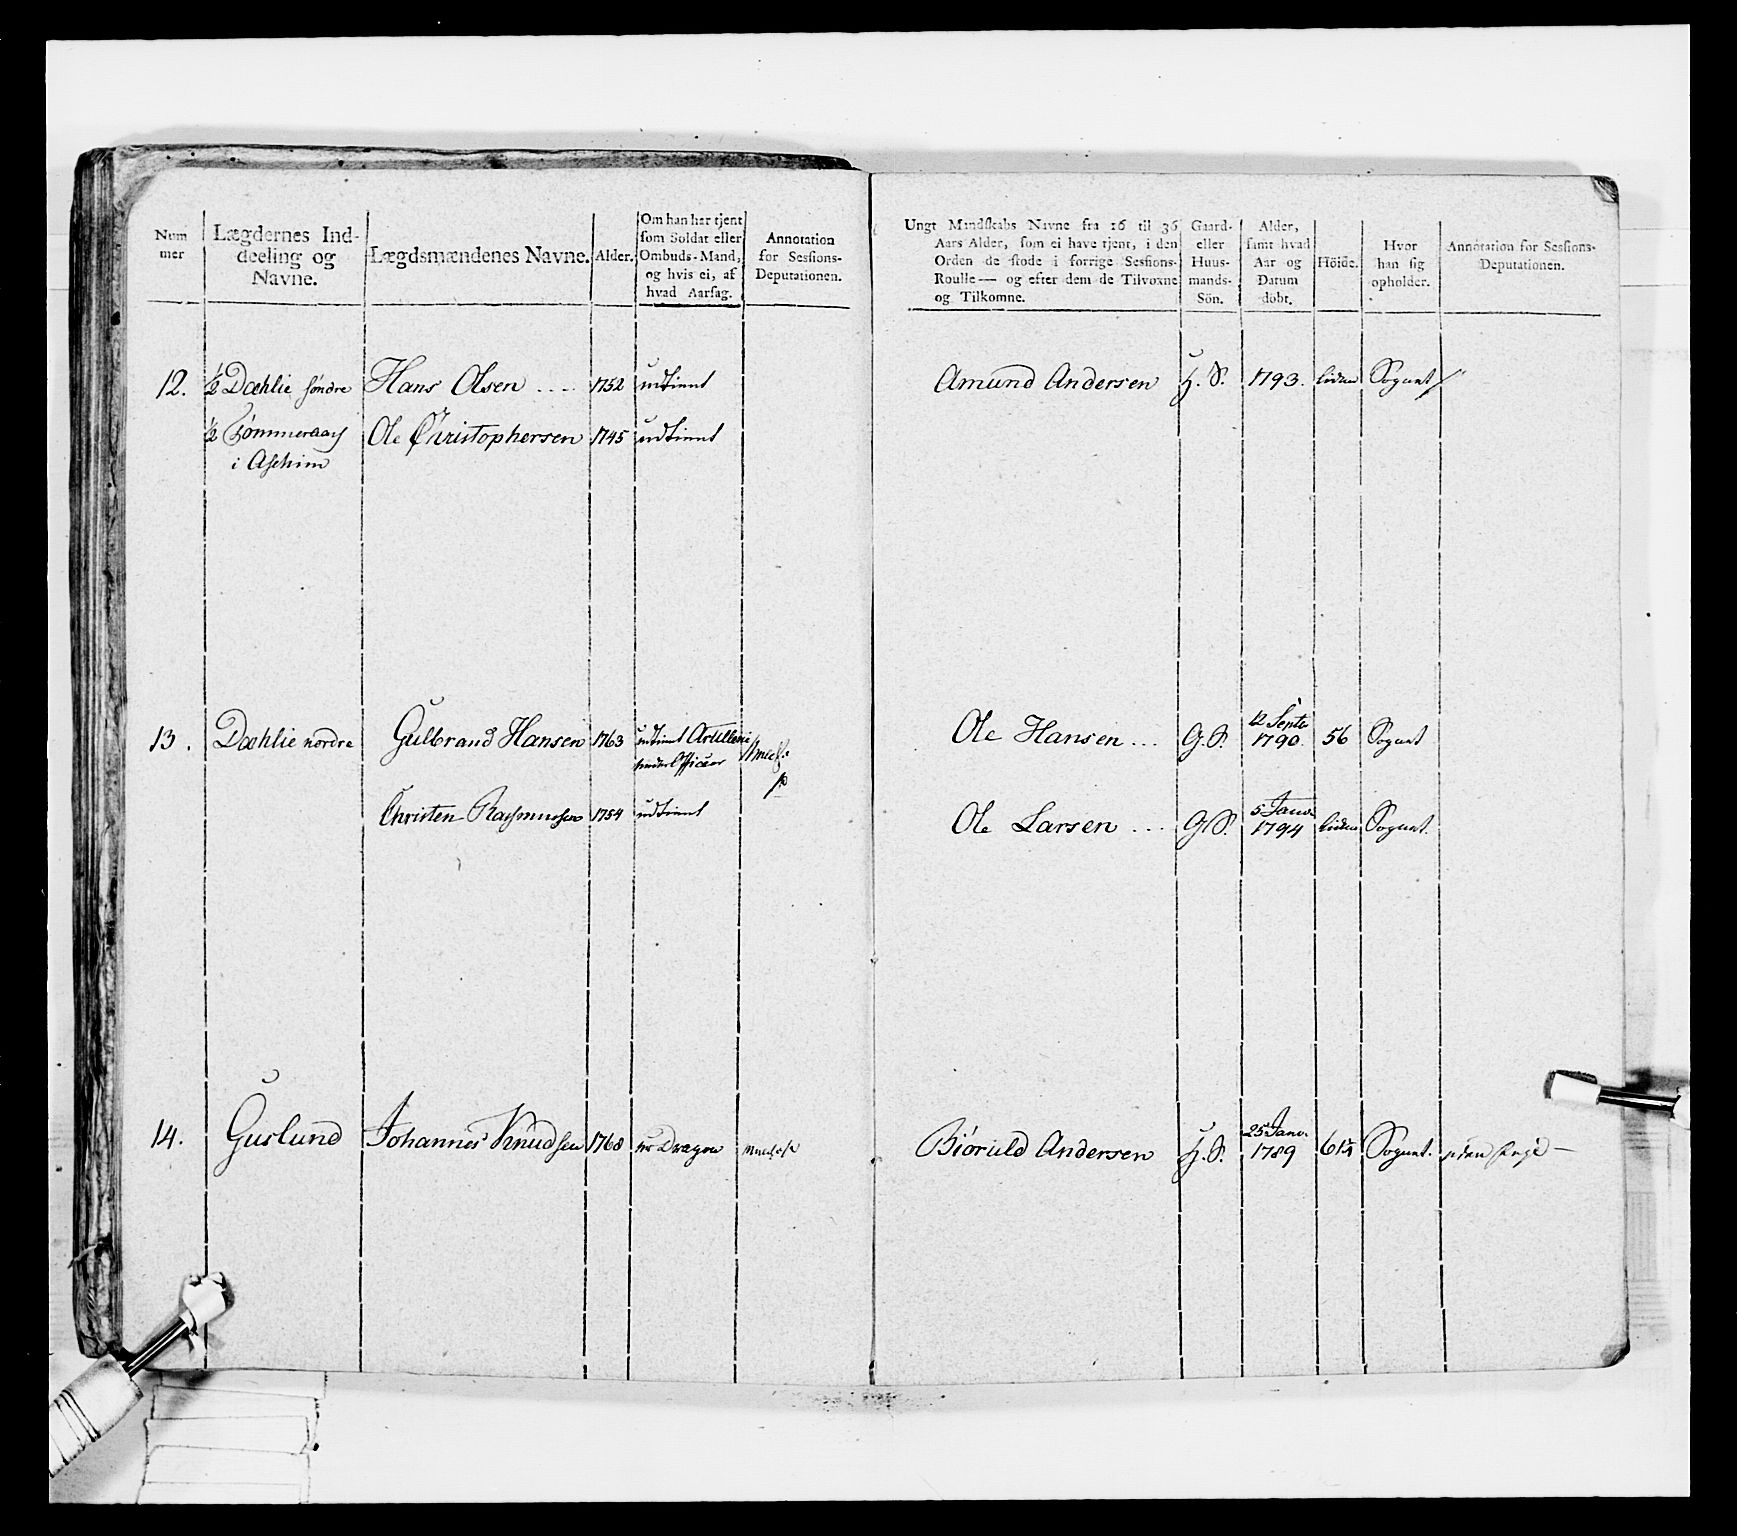 Num
mer
Lægdernes Ind-
deeling og
Navne.
Lægdsmændenes Navne.
Alder.
Om han har tjent
som Soldat eller
Ombuds-Mand,
og hvis ei, af
hvad Aarsag.
Annotation
for Sessions-
Deputationen.
12.
½ Dæhlie søndre
Hans Olsen
1752
udtient
½ Tømmeraas
i Aschim
Ole Christophersen
1745
udtient
13.
Dæhlie nordre
Gulbrand Hansen
1763
udtient Artillerie
underOfficeer
Christen Rasmussen
1754
udtient
14.
Guslund
Johannes Knudsen
1768
nr Dragon
Ungt Mandskabs Navne fra 16 til 36
Aars Alder, som ei have tjent, i den
Orden de stode i forrige Sessions-
Roulle — og efter dem de Tilvoxne
og Tilkomne.
Gaard-
eller
Huus-
mands-
Sön.
Alder,
samt hvad
Aar og
Datum
döbt.
Höide.
Hvor
han sig
opholder.
Annotation for Sessions-
Deputationen.
Amund Andersen
H. S.
1793.
liden
Sognet
Ole Hansen
G. S.
12 Septr
1790.
56
Sognet
Ole Larsen
G S.
5 Janv.
1794
liden
Sognet.
Biøruld Andersen
H. S.
25 Janv.
1789
61½
Sognet.